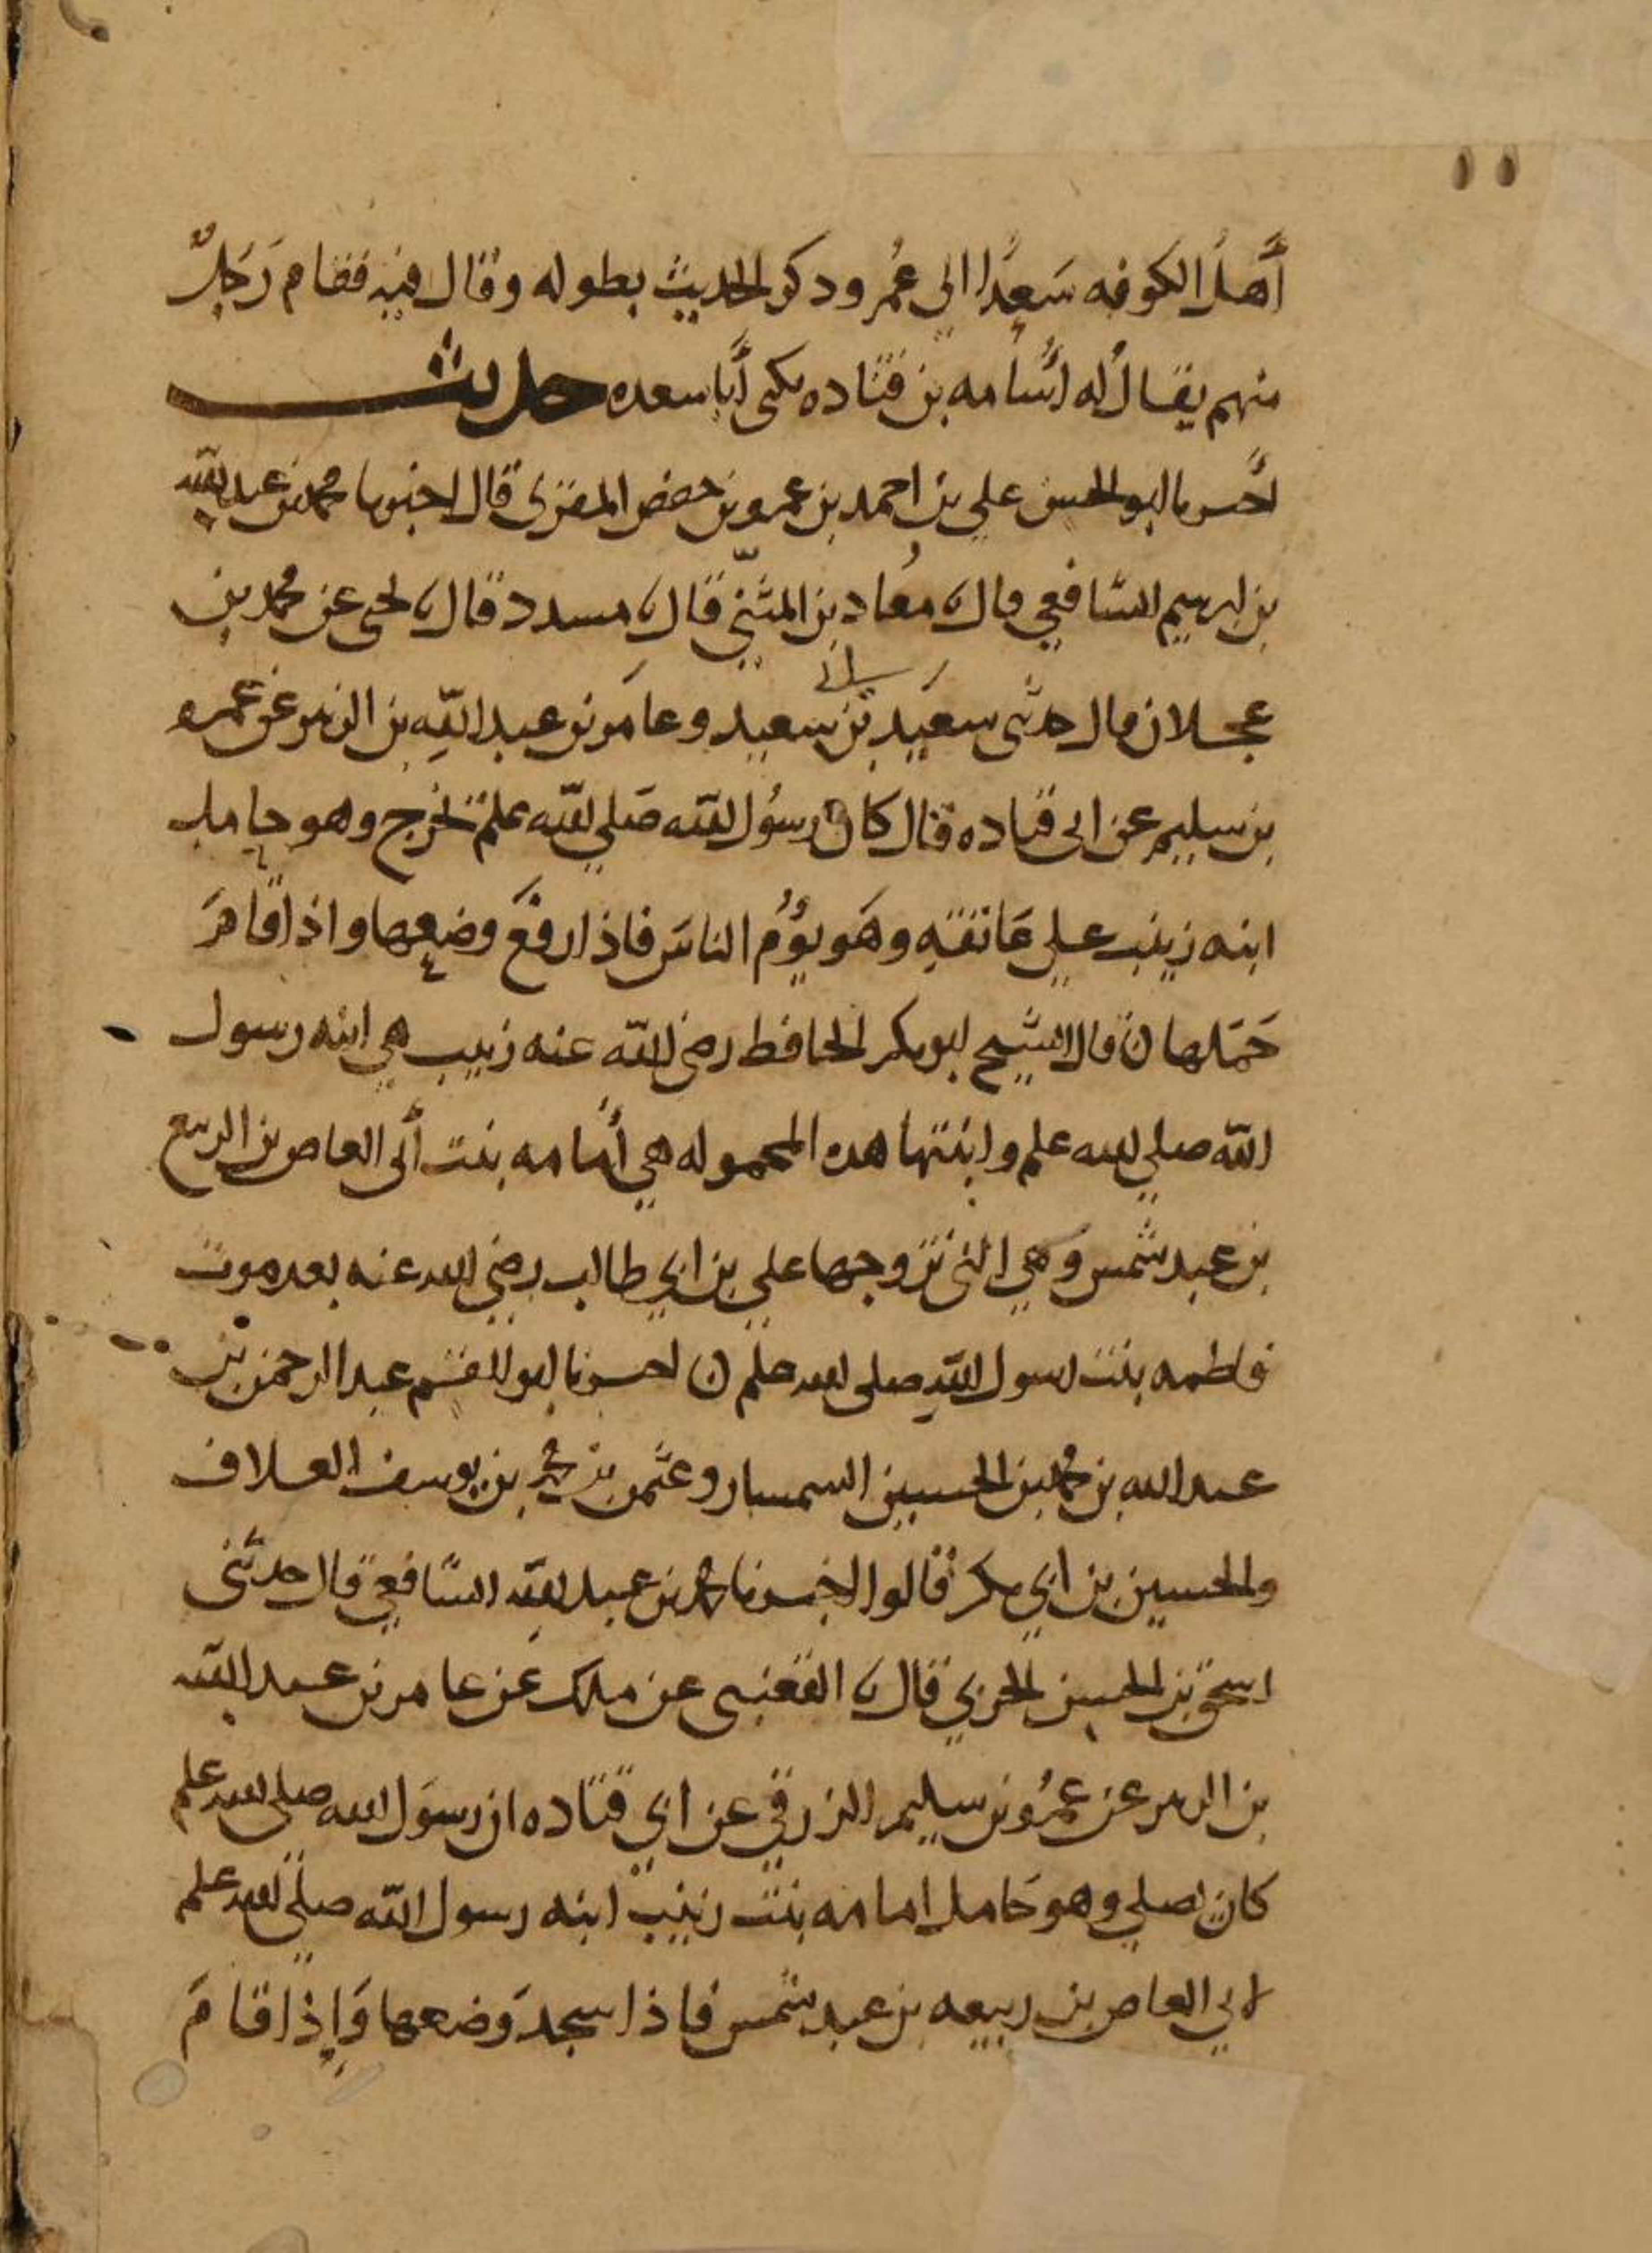 ١١
أَهلُ الكوفه سَعدًا الى عُمر وذكر الحديث بطوله وقال فيه فقام رَجلٌ
منهم يقال له اسُامه بن قتاده يكنى أبا سعده حديث
أخبرنا ابو الحسن علي بن احمد بن عمر بن حفص المقرى قال اخبرنا محمد بن عبد الله
بن ابرهيم الشافعي قال نا معُاذ بن المثنّى قال نا مسدد قال نا يحيى عن محمد بن
عجلان قال حدثنى سعيد بن سعيد وعامر بن عبد الله بن الزبير عن عمرو
بن سليم عن ابى قتاده قال كان رسُول الله صَلي الله علىه يخرج وهو حامل
ابنه زينب علي عَاتقهِ وهَو يؤُم الناسَ فاذا رفعَ وضعها واذا قامَ
حَمَلها ن قال الشيخ ابو بكر الحافظ رضي الله عنه زينب هي ابنه رسول
الله صلي الله علىه وابنتها هذه المحموله هي أُمامه بنت أبى العاص بن الربيع
بن عبد شمس وَهي التى تزوجها علي بن ابي طالب رضي الله عنه بعد موت
فاطمه بنت رسول الله صلى الله علىه ن اخبرنا ابو القسم عبد الرحمن بن
عبد الله بن محمد بن الحسين السمسار وعثمن بن محمد بن يوسف العلاف
والحسين بن ابي بكر قالوا اخبرنا محمد بن عبد الله الشافعي قال حدثنى
اسحق بن الحسن الحربي قال نا القعنبى عن ملك عَن عامر بن عبد الله
بن الزبير عن عمرُو بن سليم الزرقي عن ابي قتاده ان رسوَل الله صلى الله علىه
كان يصلي وهو حَامل امامه بنت زينب ابنه رسول الله صلي الله علىه
لابي العاص بن ربيعه بن عبد شمس فاذا سجدَ وَضعها وَإِذا قامَ